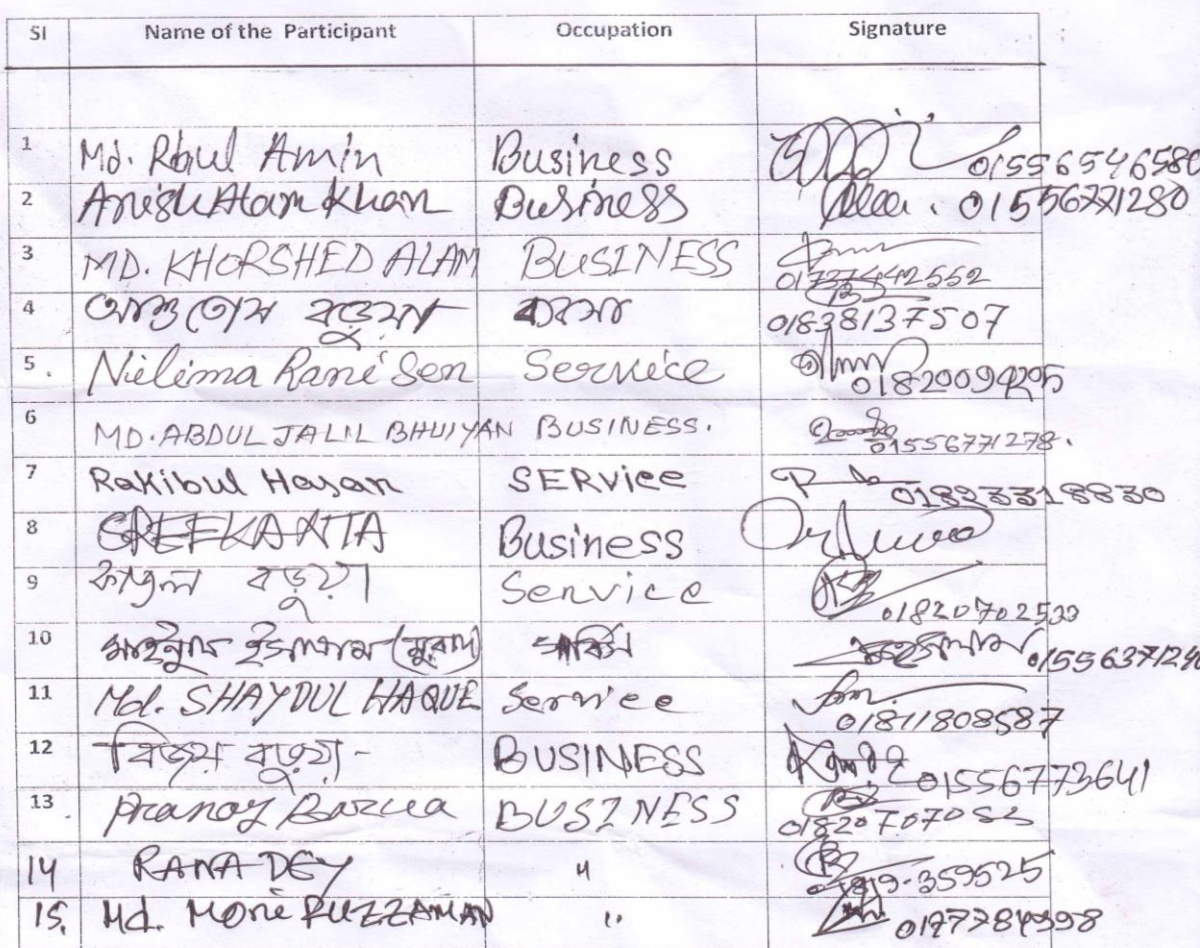 Sl Name of the Participant Occupation Signature
1 Md. Rbiul Amin Business 01556546580
2 Anish Alam Khan Business 01556771280
3 MD. KHORSHED ALAM BUSINESS 01727442552
4 বড়ুয়া 01838137507
5. Nielima Rani Sen Service
6 MD. ABDUL JALIL BHUIYAN BUSINESS. 01556771278.
7 Rakibul Hasan SERVice 01823318830
8 SREEKANTA Business
9 কাজল বড়ুয়া Service
10 ইসলাম
11 Md. SHAYDUL HAQUE Service 01811808587
12 বিজয় বড়ুয়া - BUSINESS 01556773641
13 Pranoy Barua BUSINESS 01820707082
14 RANA DEY "
15. Md. Mone RUZZAMAN "